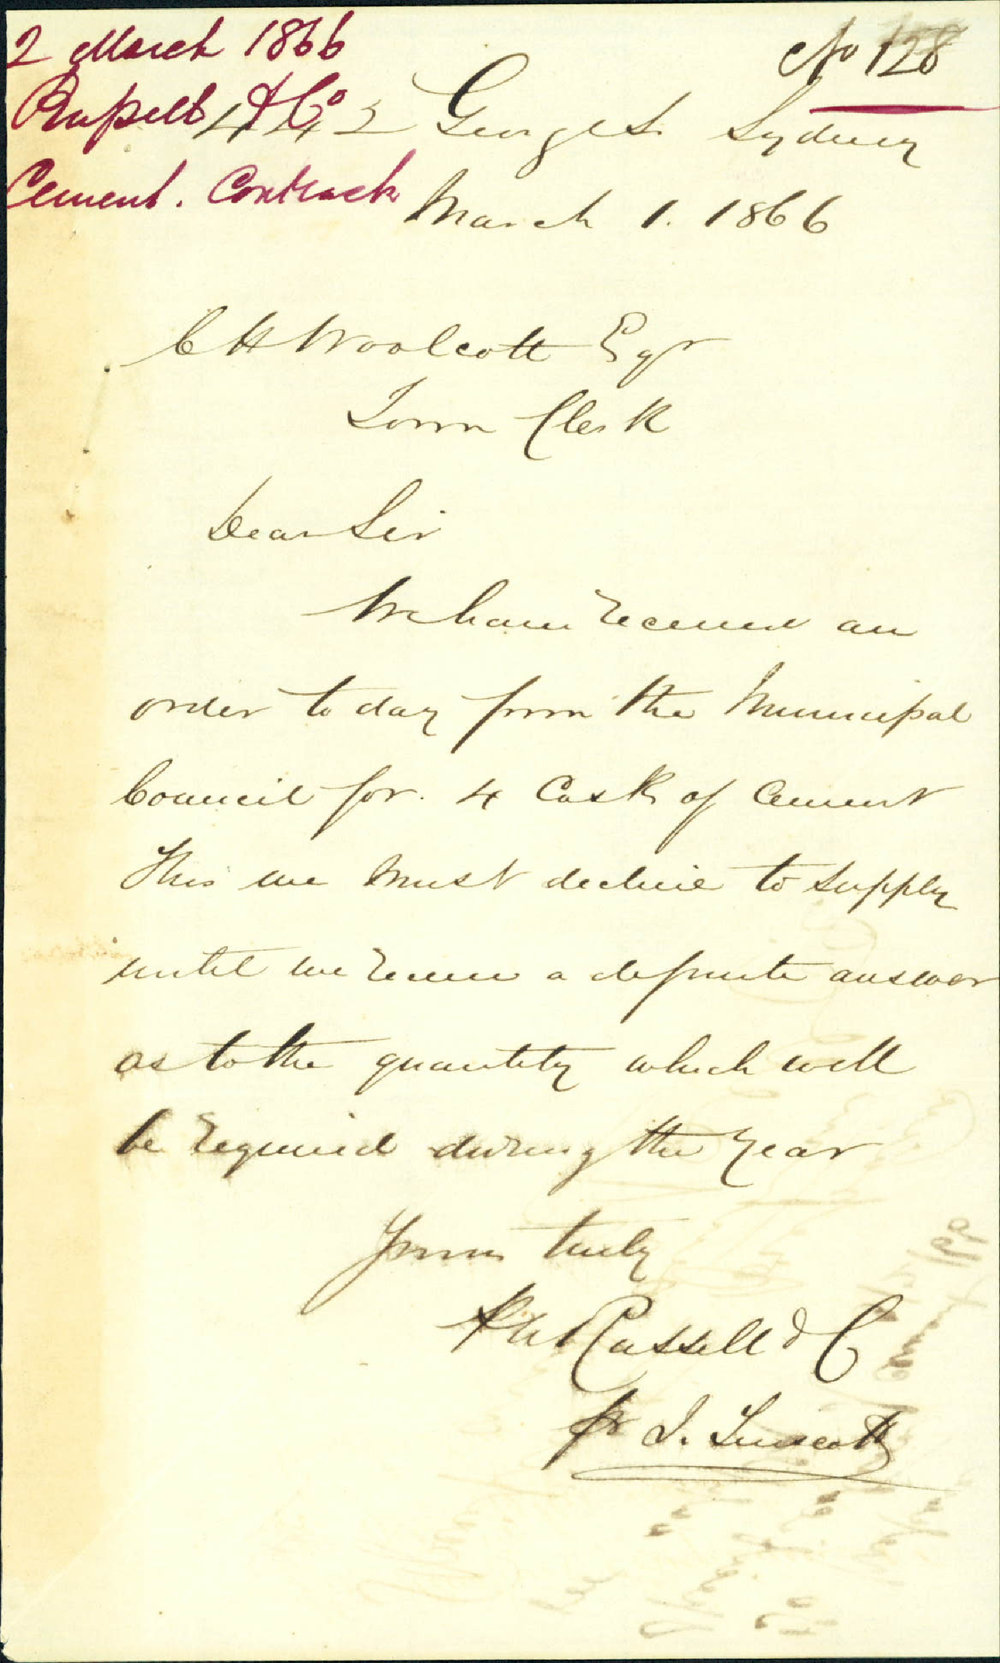 2 March 1866
No 128
Russell & Co
442 George St Sydney
Cement. Contract
March 1. 1866
C H Woolcott Esqr
Town Clerk
Dear Sir
We have received an
order to day from the Municipal
Council for. 4 Casks of Cement
This we must decline to supply
until we receive a definite answer
as to the quantity which will
be required during the year
Yours truly
Russell & C
pr J. Truscott